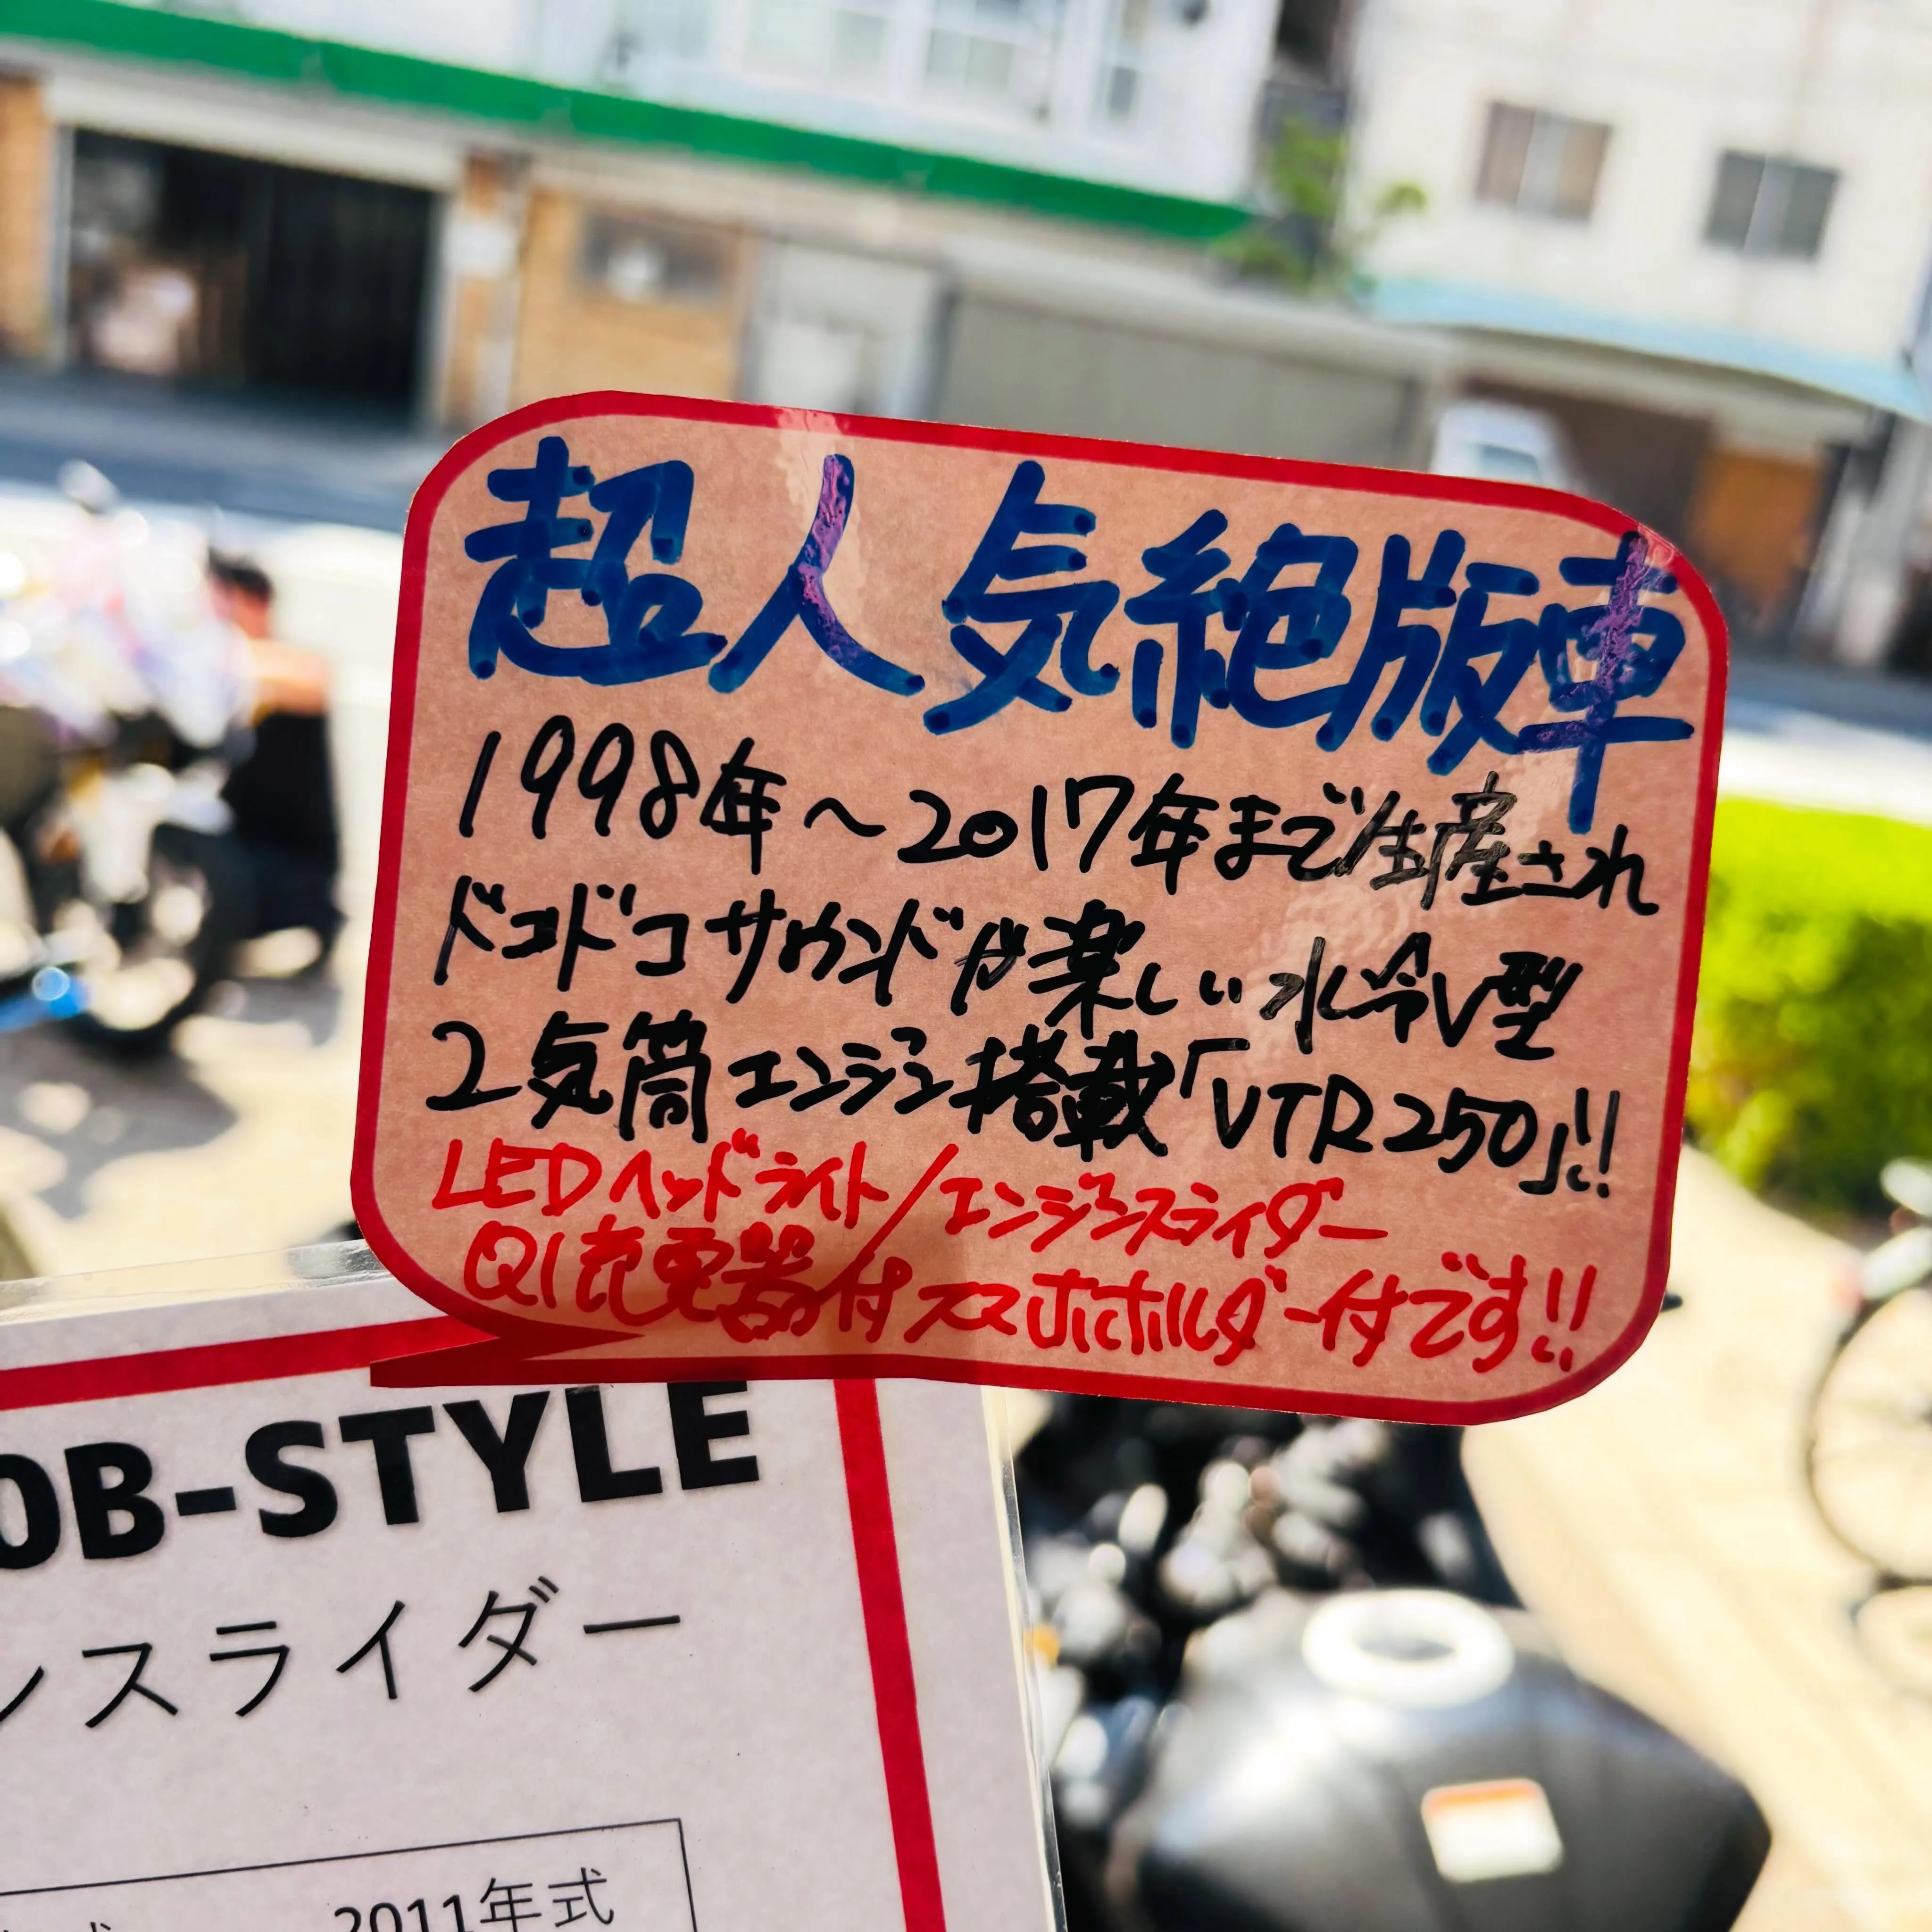 超人気絶版車
1998年～2017年まで生産され
ドコドコサウンドが楽しい水冷V型
2気筒エンジン搭載「VTR250」!!
LEDヘッドライト/エンジンスライダー
QI充電器付スマホホルダー付です!!
OB-STYLE
ンスライダー
2011年式